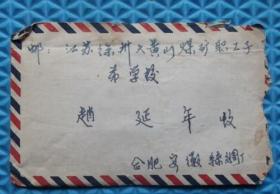 邮：江苏徐州大黄山煤矿职工子
弟学校
赵延年收
合肥安徽